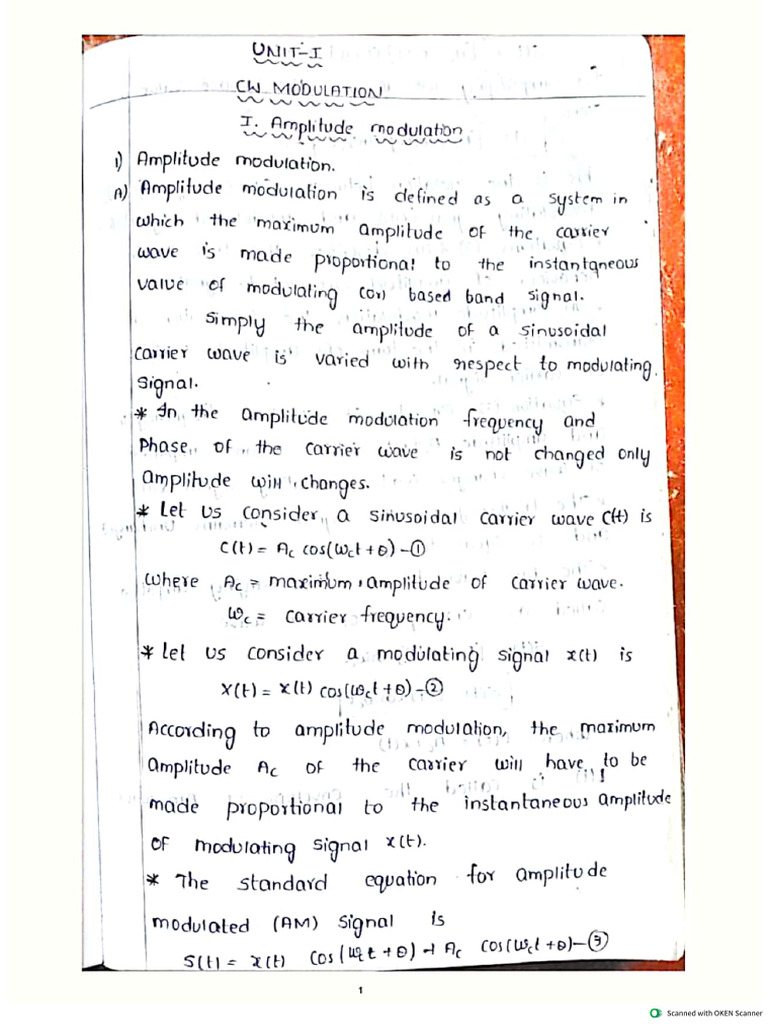 UNIT-I
CW MODULATION
I. Amplitude modulation
1) Amplitude modulation.
A) Amplitude modulation is defined as a system in
which the "maximum" amplitude of the carrier
wave is made proportional to the instantaneous
value of modulating (or) based band signal.
Simply the amplitude of a sinusoidal
carrier wave is varied with respect to modulating
signal.
* In the amplitude modulation frequency and
Phase of the carrier wave is not changed only
amplitude will changes.
* Let us consider a sinusoidal carrier wave C(t) is
C(t) = Ac cos(ωct + θ) – ①
where Ac = maximum amplitude of carrier wave.
ωc = carrier frequency.
* Let us consider a modulating signal x(t) is
X(t) = x(t) cos(ωct + θ) – ②
According to amplitude modulation, the maximum
amplitude Ac of the carrier will have to be
made proportional to the instantaneous amplitude
of modulating signal x(t).
* The standard equation for amplitude
modulated (AM) signal is
S(t) = x(t) cos(ωct + θ) + Ac cos(ωct + θ) – ③
1
Scanned with OKEN Scanner